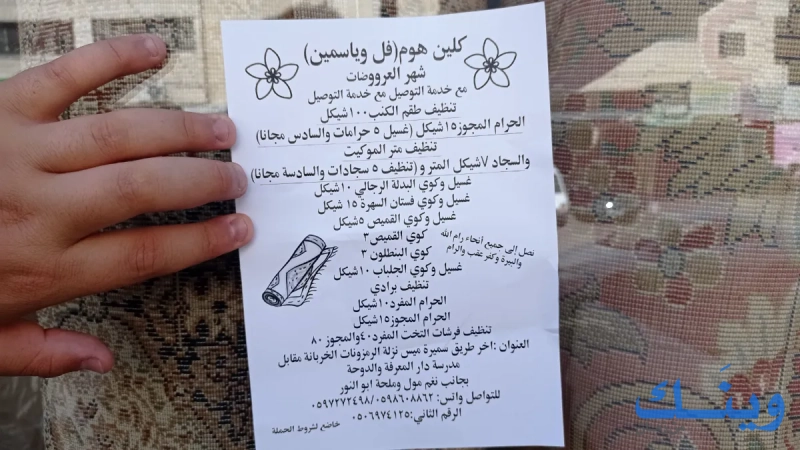 كلين هوم(فل وياسمين)
شهر العرووضات
مع خدمة التوصيل مع خدمة التوصيل
تنظيف طقم الكنب ١٠٠شيكل
الحرام المجوز١٥شيكل (غسيل ٥ حرامات والسادس مجانا)
تنظيف متر الموكيت
والسجاد ٧شيكل المتر و(تنظيف ٥ سجادات والسادسة مجانا)
غسيل وكوي البدلة الرجالي ١٠شيكل
غسيل وكوي فستان السهرة ١٥ شيكل
غسيل وكوي القميص ٥شيكل
كوي القميص٣
كوي البنطلون ٣
نصل إلى جميع أنحاء رام الله
والبيرة وكفر عقب والرام
غسيل وكوي الجلباب ١٠شيكل
تنظيف برادي
الحرام المفرد١٠شيكل
الحرام المجوز١٥شيكل
تنظيف فرشات التخت المفرد٤٠والمجوز ٨٠
العنوان :اخر طريق سميرة ميس نزلة الرمزونات الخربانة مقابل
مدرسة دار المعرفة والدوحة
بجانب نغم مول وملحة ابو النور
للتواصل واتس: ٠٥٩٧٢٧٢٤٩٨/٠٥٩٨٦٠٨٨٦٢
الرقم الثاني:٠٥٠٦٩٧٤١٢٥
خاضع لشروط الحملة
وينك